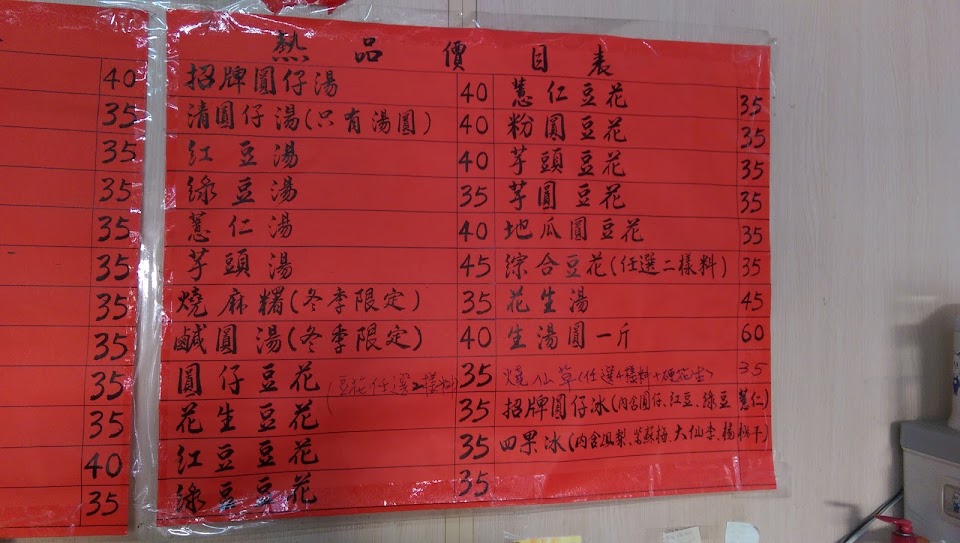 40
35
35
35
35
35
35
35
35
35
40
35
熱品價目表
招牌圓仔湯 40
清圓仔湯(只有湯圓) 40
紅豆湯 40
綠豆湯 35
薏仁湯 40
芋頭湯 45
燒麻糬(冬季限定) 35
鹹圓湯(冬季限定) 40
圓仔豆花(豆花任選2樣料) 35
花生豆花 35
紅豆豆花 35
綠豆豆花 35
薏仁豆花 35
粉圓豆花 35
芋頭豆花 35
芋圓豆花 35
地瓜圓豆花 35
綜合豆花(任選二樣料) 35
花生湯 45
生湯圓一斤 60
燒仙草(任選4樣料+硬花生) 35
招牌圓仔冰(內含圓仔、紅豆、綠豆 薏仁)
四果冰(內含鳳梨、紫蘇梅、大仙李、楊桃干)